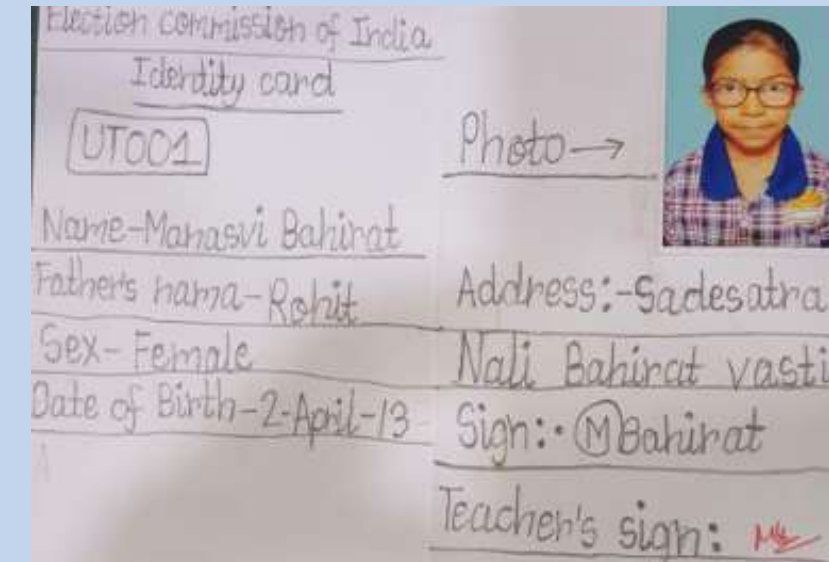 Election commission of India
Identity card
UT001
Name-Manasvi Bahirat
Father's nama-Rohit
Sex-Female
Date of Birth-2-April-13
Photo→
Address:-Sadesatra
Nali Bahirat vasti
Sign:· MBahirat
Teacher's sign: